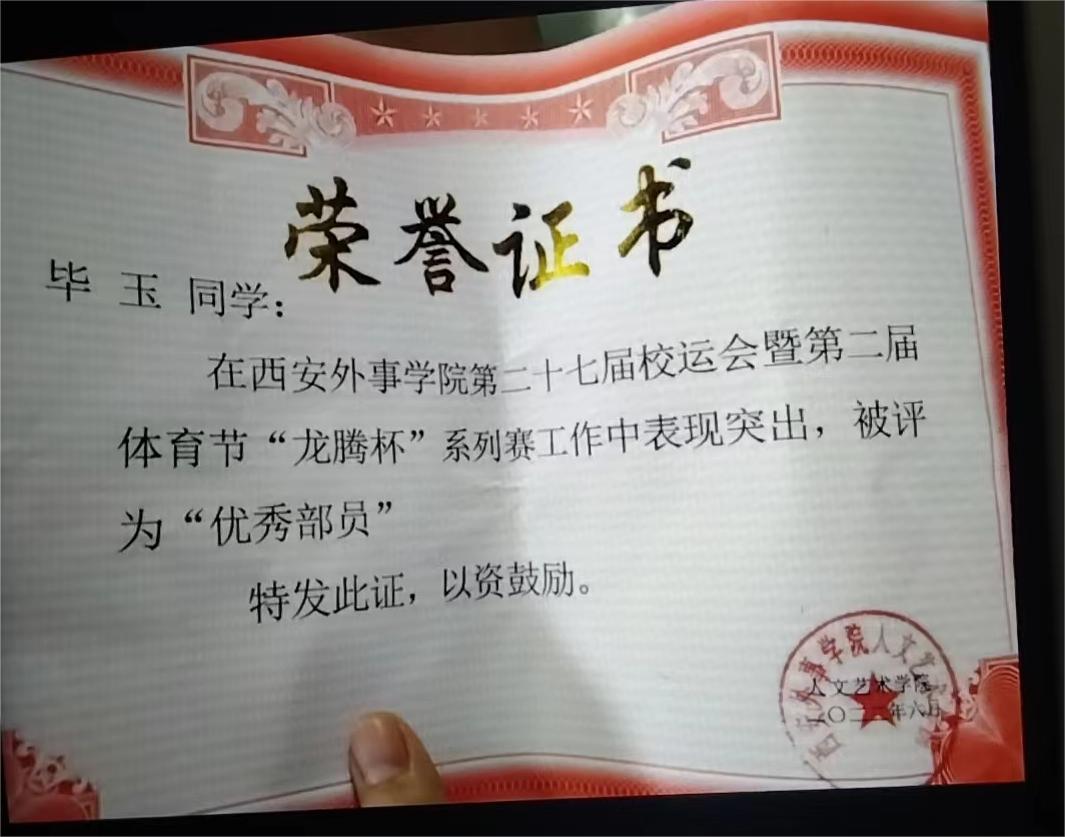 荣誉证书
毕 玉 同学：
在西安外事学院第二十七届校运会暨第二届
体育节“龙腾杯”系列赛工作中表现突出，被评
为“优秀部员”
特发此证，以资鼓励。
人文艺术学院